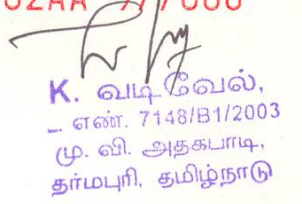 K. வடிவேல்,
எண். 7148/B1/2003
மு. வி. அதகபாடி,
தர்மபுரி, தமிழ்நாடு